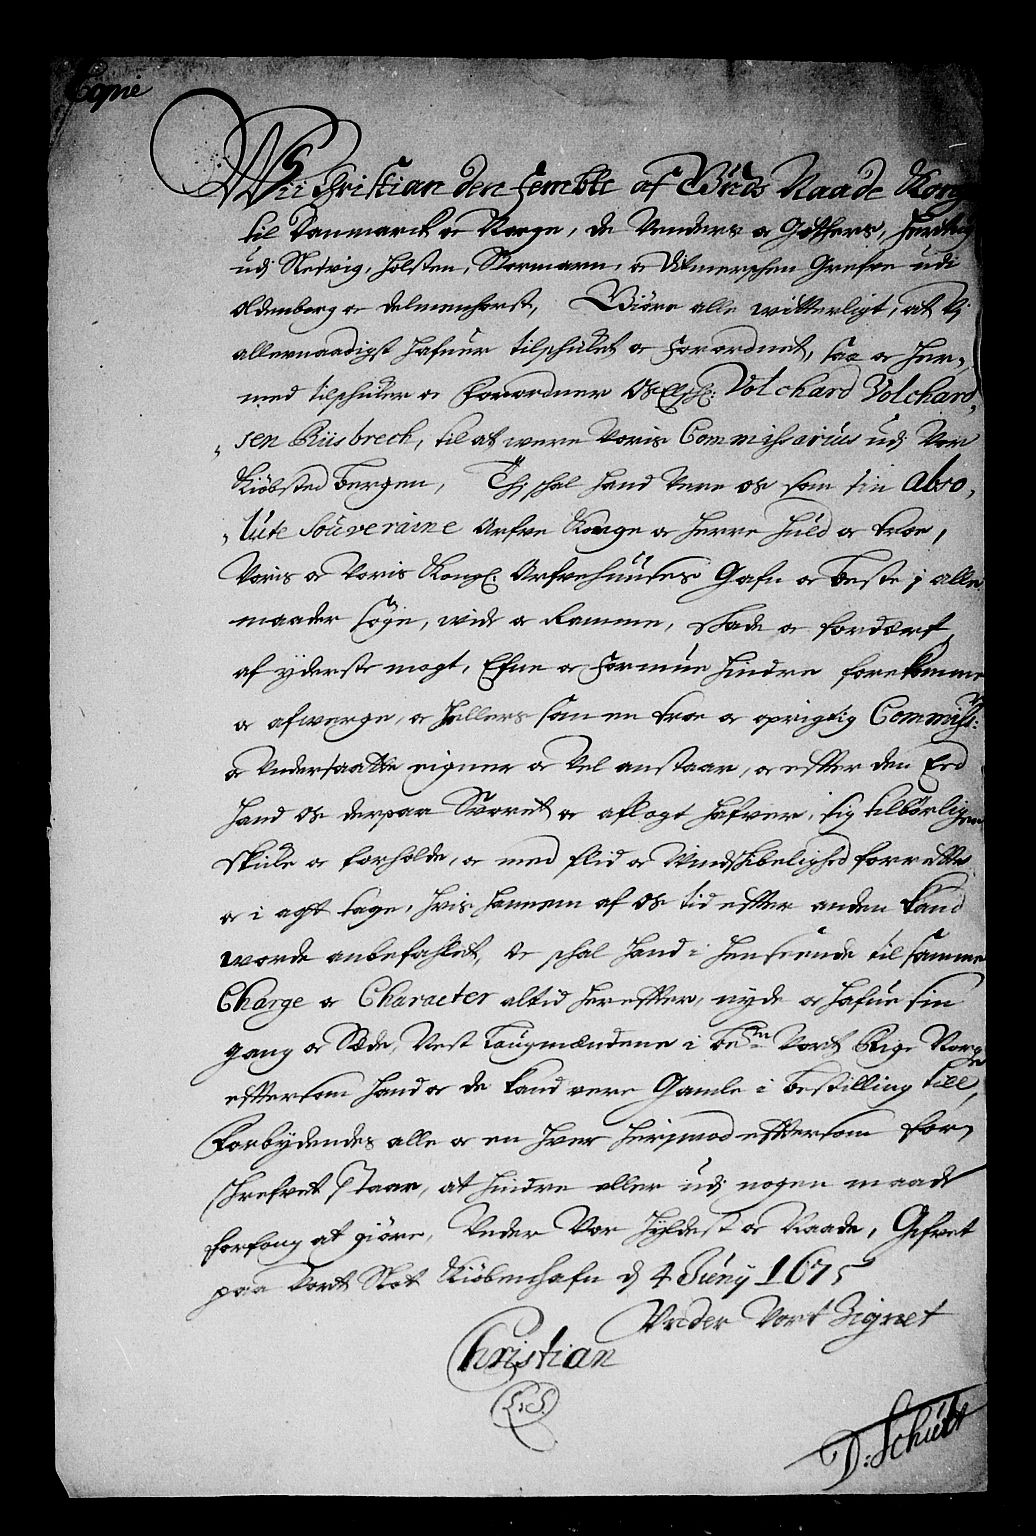 Copie
Wii Christian den fembte af Guds Naade Konge
til Danmarck oc Norge, de Venders oc Gothers, Hertug
udj Slesvig, Holsten, Stormarn, oc Ditmerschen Grefve udi
Oldenborg oc Delmenhorst, Giöre alle witterligt, at Vj
allernaadigst hafuer tilskicket oc forordnet, saa oc her-
med tilskicker oc forordner Os Elschl: Volchard Volchard,
„sen Riisbrech, til at were Voris Commissarius udj Vor
Kiöbsted Bergen, Thj schal hand Vere Os som sin abso,
„lute Souveraine Arfve Konge oc Herre huld oc troe,
Voris oc Voris Kongl: Arfvehuuses Gafn oc beste j alle
maader söge, wide oc Ramme, Skade oc fordærf,
af yderste magt, Efne oc formue hindre forekomme
oc afwerge, oc hellers som en troe oc oprigtig Commiss:
oc Undersaatte eigner oc Vel anstaar, oc efter den Eed
hand Os derpaa Svoret oc aflagt hafver, sig tilbörligen
skicke oc forholde, oc med flid oc Vindskibelighed forrette
oc i agt tage, hvis hannem af Os tid efter anden kand
worde anbefahlet, De schal hand i henseende til samme
Charge oc Character altid herefter, nyde oc hafue sin
gang oc Sæde, Nest Laugmændene i bem:te Vort Rige Norge
eftersom hand oc de kand vere Gamle i bestilling till,
Forbydendes alle oc en hver herimod eftersom for,
schrefvet staar, at hindre eller udj nogen maade
forfang at giöre, Under Vor Hyldest oc Naade, Gifvet
paa Vort Slot Kiöbenhafn d 4 Junij 1675
Under Vort Zignet
Christian
L.S.
D: Schütt